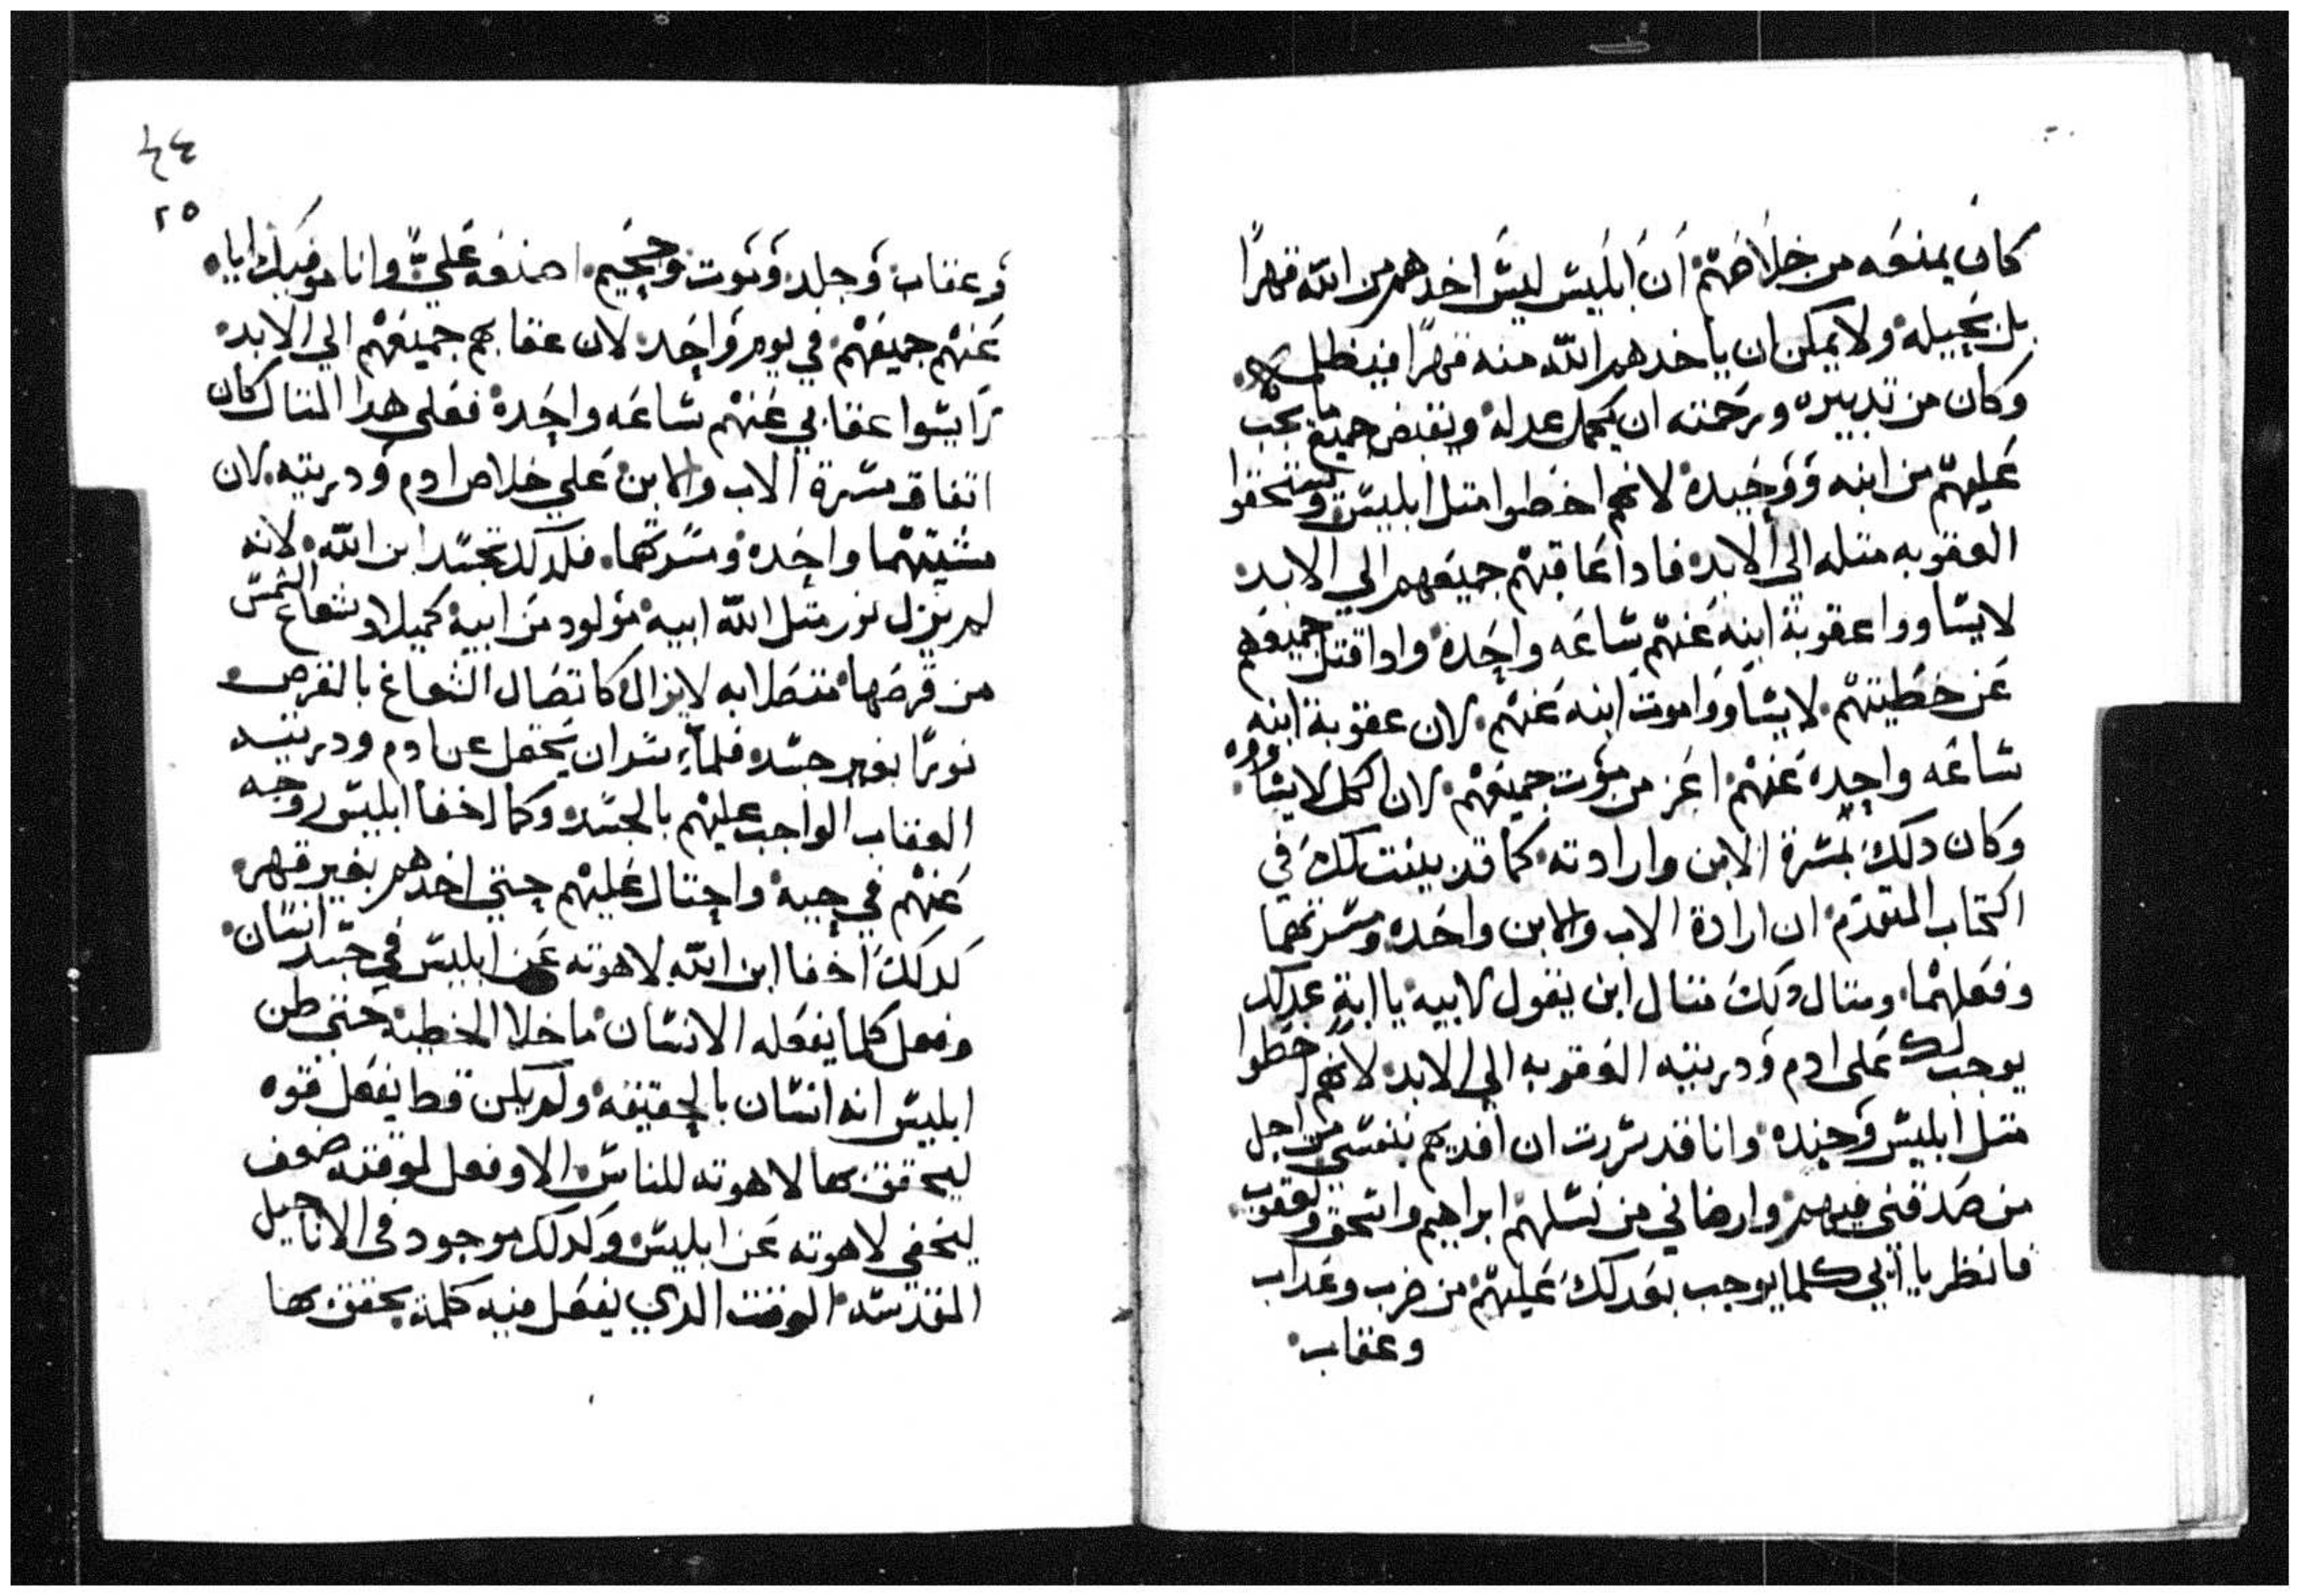 كان يمنعه من خلاصهم ان ابليس ليس اخدهم من الله قهرًا
بل بحيله ولا يمكن ان ياخدهم الله منه قهرًا فيظلمه
وكان من تدبيره ورحمته ان يكمل عدله ويقبض جميع ما يجب
عليهم من ابنه ووحيده لانهم اخطوا متل ابليس ويستحقوا
العقوبه متله الي الابد فادا عاقبهم جميعهم الي الابد
لا يساووا عقوبة ابنه عنهم ساعه واحده وادا قتل جميعهم
عن خطيتهم لا يساووا موت ابنه عنهم لان عقوبة ابنه
ساعه واحده عنهم اعز من موت جميعهم لان الكل لا يساووه
وكان دلك بمسرة الابن وارادته كما قد بينت لك في
الكتاب المتقدم ان ارادة الاب والابن واحده ومسرتهما
وفعلهما ومتال دلك متال ابن يقول لابيه يا ابة عدلك
يوجب لك على ادم ودريته العقوبه الي الابد لانهم اخطوا
متل ابليس وجنده وانا قد سررت ان افديهم بنفسي من اجل
من صدقني فيهم وارضاني من نسلهم ابراهيم واسحق ويعقوب
فانظر يا ابي كلما يوجب بعدلك عليهم من ضرب وعداب
وعقاب
٢٤
٢٥
وعقاب وجلد وموت وجحيم اصنعه علي وانا موفيك اياه
عنهم جميعهم في يوم واحد لان عقابهم جميعهم الي الابد
ما يسوا عقابي عنهم ساعه واحده فعلى هدا المتال كان
اتفاق مسرة الاب والابن علي خلاص ادم ودريته لان
مشيتهما واحده ومسرتهما فلدلك تجسد ابن الله لانه
لم يزل نور متل الله ابيه مولود من ابيه كميلاد شعاع الشمس
من قرصها متصلا به لا يزال كاتصال الشعاع بالقرص
نورًا بغير جسد فلما سر ان يحتمل عن ادم ودريته
العقاب الواجب عليهم بالجسد وكما اخفا ابليس روحه
عنهم في حيه واحتال عليهم حتي اخدهم بغير قهر
كدلك اخفا ابن الله لاهوته عن ابليس في جسد انسان
وفعل كلما يفعله الانسان ما خلا الخطيه حتى ظن
ابليس انه انسان بالحقيقه ولم يكن قط يفعل قوه
ليحقق بها لاهوته للناس الا وفعل لوقته ضعف
ليخفي لاهوته عن ابليس وكدلك موجود في الاناجيل
المقدسه الوقت الدي يفعل فيه كلمة يحقق بها